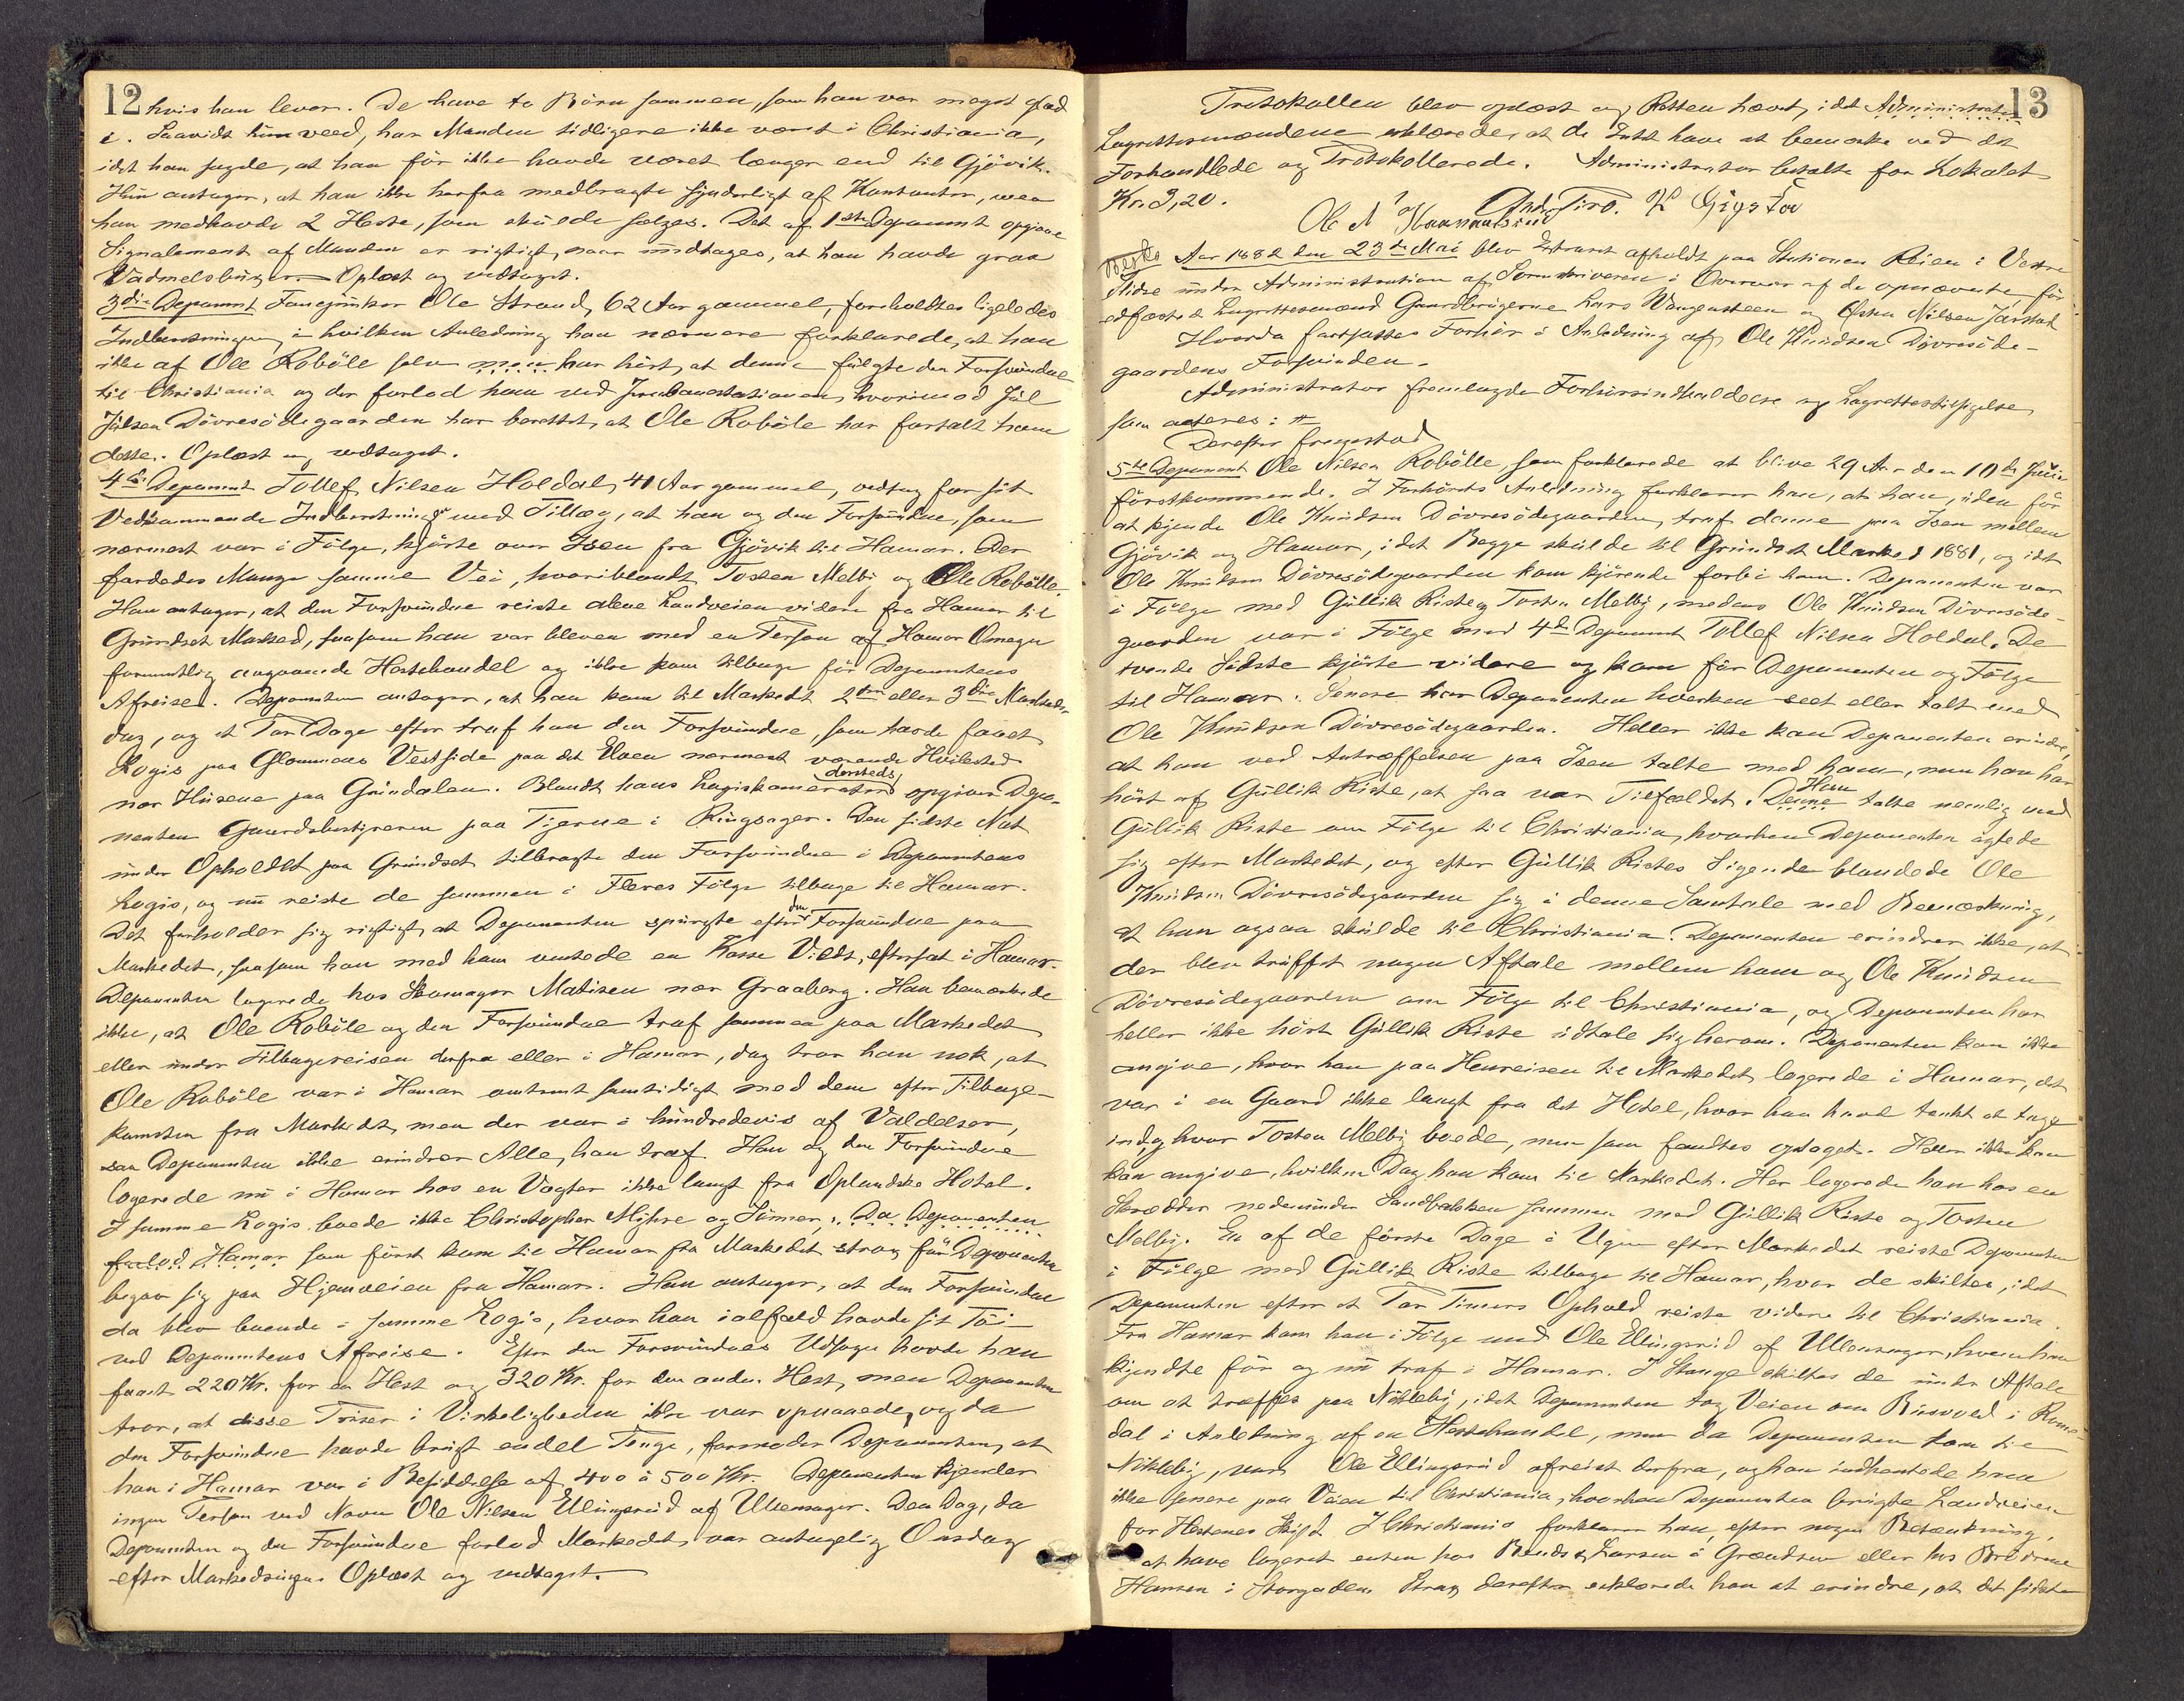 12
hvis han lever. De have to Börn sammen, som han var meget glad
i. Saavidt hun veed, har Manden tidligere ikke været i Christiania,
idet han sagde, at han för ikke havde været længer end til Gjövik.
Hun antager, at han ikke herfra medbragte synderligt af Kontanter, men
han medhavde 2 Heste, som skulde sælges. Det af 1ste Deponent opgivne
Signalement af Manden er rigtigt, naar undtages, at han havde graa
Vadmelsbuxer. Oplæst og vedtaget.
3die Deponent Fanejunker Ole Strand, 62 Aar gammel, foreholdtes ligeledes
Indberetningen, i hvilken Anledning han nærmere forklarede, at han
ikke af Ole Roböle selv men har hört, at denne fulgte den Forsvundne
til Christiania og der forlod ham ved Jernbanestationen, hvorimod Jul
Julsen Dövresödegaarden har berettet, at Ole Roböle har fortalt ham
dette. Oplæst og vedtaget.
4de Deponent Tollef Nilsen Holdal, 41 Aar gammel, vedtog for sit
Vedkommende Indberetningen med Tillæg, at han og den Forsvundne, som
nærmest var i Fölge, kjörte over Isen fra Gjövik til Hamar. Der
færdedes Mange samme Vei, hvoriblandt Tosten Melby og Ole Robölle.
Han antager, at den Forsvundne reiste alene Landveien videre fra Hamar til
Grundset Marked, saasom han var bleven med en Person af Hamar Omegn
formentlig angaaende Hestehandel og ikke kom tilbage för Deponentens
Afreise. Deponenten antager, at han kom til Markedet 2den eller 3die Markeds-
dag, og et Par Dage efter traf han den Forsvundne, som havde faaet
Logis paa Glommens Vestside paa det Elven nærmest værende Hvilested
nær Husene paa Grindalen. Blandt hans Logiskamerater dersteds opgiver Depo-
nenten Gaardsbestyreren paa Tjerne i Ringsager. Den sidste Nat
under Opholdet paa Grundset tilbragte den Forsvundne i Deponentens
Logis, og nu reiste de sammen i Fleres Fölge tilbage til Hamar.
Det forholder sig rigtigt, at Deponenten spurgte efter den Forsvundne paa
Markedet, saasom han med ham ventede en Kasse Vildt, eftersat i Hamar.
Deponenten logerede hos Skomager Matisen nær Graaberg. Han bemærkede
ikke, at Ole Roböle og den Forsvundne traf sammen paa Markedet
eller under Tilbagereisen derfra eller i Hamar, dog tror han nok, at
Ole Roböle var i Hamar omtrent samtidigt med dem efter Tilbage-
komsten fra Markedet, men der var i hundredevis af Valdølser,
saa Deponenten ikke erindrer Alle, han traf. Han og den Forsvundne
logerede nu i Hamar hos en Vægter ikke langt fra Oplandske Hotel.
I samme Logis boede ikke Christopher Myhre og Sönner. Da Deponenten
forlod Hamar som först kom til Hamar fra Markedet strax för Deponenten
begav sig paa Hjemveien fra Hamar. Han antager, at den Forsvundne
da blev boende i samme Logis, hvor han ialfald havde sit Töi
ved Deponentens Afreise. Efter den Forsvundnes Udsagn havde han
faaet 220 Kr. for en Hest og 320 Kr. for den anden Hest, men Deponenten
tror, at disse Priser i Virkeligheden ikke var opnaaede, og da
den Forsvundne havde brugt endel Penge, formoder Deponenten, at
han i Hamar var i Besiddelse af 400 à 500 Kr. Deponenten kjender
ingen Person ved Navn Ole Nilsen Ellingsrud af Ullensager. Den Dag, da
Deponenten og den Forsvundne forlod Markedet, var antagelig Onsdag
efter Markedsugen. Oplæst og vedtaget.
13
Protokollen blev oplæst og Retten hævet, idet Administrator
Lagrettesmændene erklærede, at de Intet have at bemærke ved det
Forhandlede og Protokollerede. Administrator betalte for Lokalet
Kr. 3,20.
Aar 1882 den 23de Mai blev Extraret afholdt paa Stationen Reien i Vestre
Slidre under Administration af Sorenskriveren i Overvær af de opnævnte, för
edfæstede Lagrettesmænd Gaardbrugerne Lars Wangensteen og Østen Nilsen Jarstad
Hvorda fortsattes Forhör i Anledning af Ole Knudsen Dövresöde-
gaardens Forsvinden.
Administrator fremlagde Forhörsindkaldelse og Lagrettestilsigelse,
som acteres:
Derefter fremstod
5te Deponent Ole Nilsen Robölle, som forklarede at blive 29 Aar den 10de Juni
förstkommende. I Forhörets Anledning forklarer han, at han, uden för
at kjende Ole Knudsen Dövresödegaarden, traf denne paa Isen mellem
Gjövik og Hamar, idet Begge skulde til Grundset Marked 1881, og idet
Ole Knudsen Dövresödegaarden kom kjörende forbi ham. Deponenten var
i Fölge med Gullik Riste og Tosten Melby, medens Ole Knudsen Dövresöde-
gaarden var i Fölge med 4de Deponent Tollef Nilsen Holdal. De
tvende Sidste kjörte videre og kom för Deponenten og Fölge
til Hamar. Senere har Deponenten hverken seet eller talt med
Ole Knudsen Dövresödegaarden. Heller ikke kan Deponenten erindre,
at han ved Antræffelsen paa Isen talte med ham, men han har
hört af Gullik Riste, at saa var Tilfældet. Denne Han talte nemlig med
Gullik Riste om Fölge til Christiania, hvorhen Deponenten agtede
sig efter Markedet, og efter Gullik Ristes Sigende blandede Ole
Knudsen Dövresödegaarden sig i denne Samtale med Bemærkning,
at han ogsaa skulde til Christiania. Deponenten erindrer ikke, at
der blev truffet nogen Aftale mellem ham og Ole Knudsen
Dövresödegaarden om Fölge til Christiania, og Deponenten har
heller ikke hört Gullik Riste udtale sig herom. Deponenten kan ikke
angive, hvor han paa Henreisen til Markedet logerede i Hamar, det
var i en Gaard ikke langt fra det Hotel, hvor han havde tænkt at tage
ind, og hvor Tosten Melby boede, men som fandtes optaget. Heller ikke kan
han angive, hvilken Dag han kom til Markedet. Her logerede han hos en
Skrædder nedenunder Sandbakken sammen med Gullik Riste og Tosten
Melby. En af de förste Dage i Ugen efter Markedet reiste Deponenten
i Fölge med Gullik Riste tilbage til Hamar, hvor de skiltes, idet
Deponenten efter et Par Timers Ophold reiste videre til Christiania.
Fra Hamar kom han i Fölge med Ole Ellingsrud af Ullensager, hvem han
kjendte för og nu traf i Hamar. I Stange skiltes de under Aftale
om at træffes paa Nökleby, idet Deponenten tog Veien om Risvoed i Rome-
dal i Anledning af en Hestehandel, men da Deponenten kom til
Nökleby, var Ole Ellingsrud afreist derfra, og han indhentede ham
ikke senere paa Veien til Christiania, hvorhen Deponenten brugte Landveien
for Hestenes Skyld. I Christiania forklarer han, efter nogen Betænkning,
at have logeret enten hos Bends & Larsen i Grændsen eller hos Brödrene
Hansen i Storgaden. Strax derefter erklærede han at erindre, at det sidste